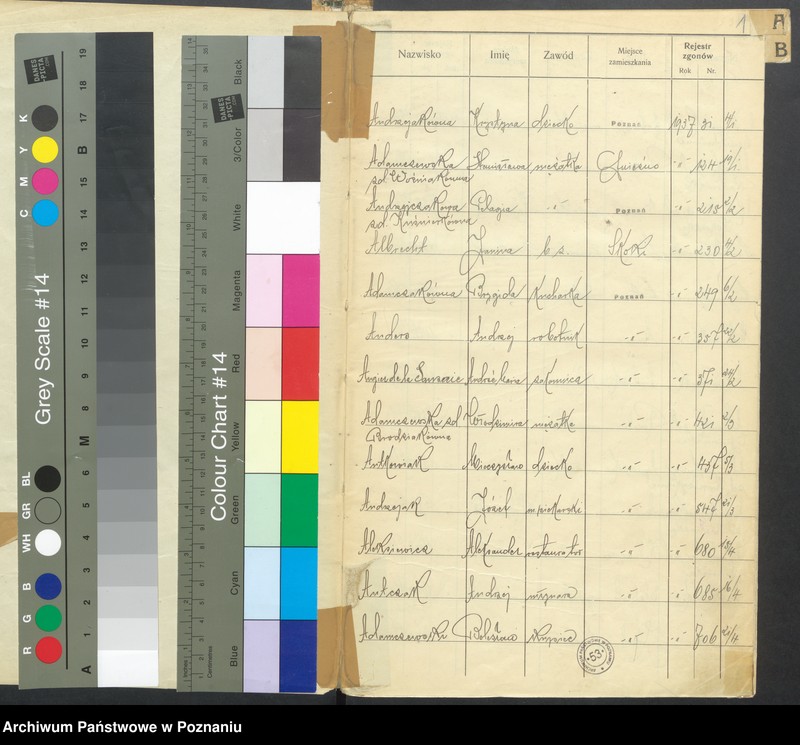 1 A
B
Nazwisko Imię Zawód Miejsce zamieszkania Rejestr zgonów
Rok Nr.
Andrzejakówna Krystyna dziecko Poznań 1937 31 4/1
Adamczewska Stanisława mężatka Gniezno -"- 124 19/1
sd Woźniakówna
Andrzejczakowa Pelagia -"- Poznań -"- 213 2/2
sd Kuźniarkówna
Albrecht Janina b.s. Skoki -"- 230 4/2
Adamczakówna Brygida Kucharka Poznań -"- 249 6/2
Anders Andrzej robotnik -"- -"- 357 22/2
zakonnica -"- -"- 371 24/2
Adamczewska sd Włodzimira mężatka -"- -"- 421 2/3
Brodziakówna
Antkowiak Mieczysław dziecko -"- -"- 457 5/3
Andrzejak Józef m. piekarski -"- -"- 547
Aleksiewicz Aleksander restaurator -"- -"- 680 15/4
Antczak Andrzej -"- -"- 685 16/4
Adamczewski Bolesław -"- -"- 706 21/4
53
DANES
-PICTA
.COM
Grey Scale #14
K Y M C
BL GR WH
B G R
A 1 2 3 4 5 6 M 8 9 10 11 12 13 14 15 B 17 18 19
DANES
-PICTA
.COM
Colour Chart #14
Black
3/Color
White
Magenta
Red
Yellow
Green
Cyan
Blue
Inches
Centimetres
Archiwum Państwowe w Poznaniu